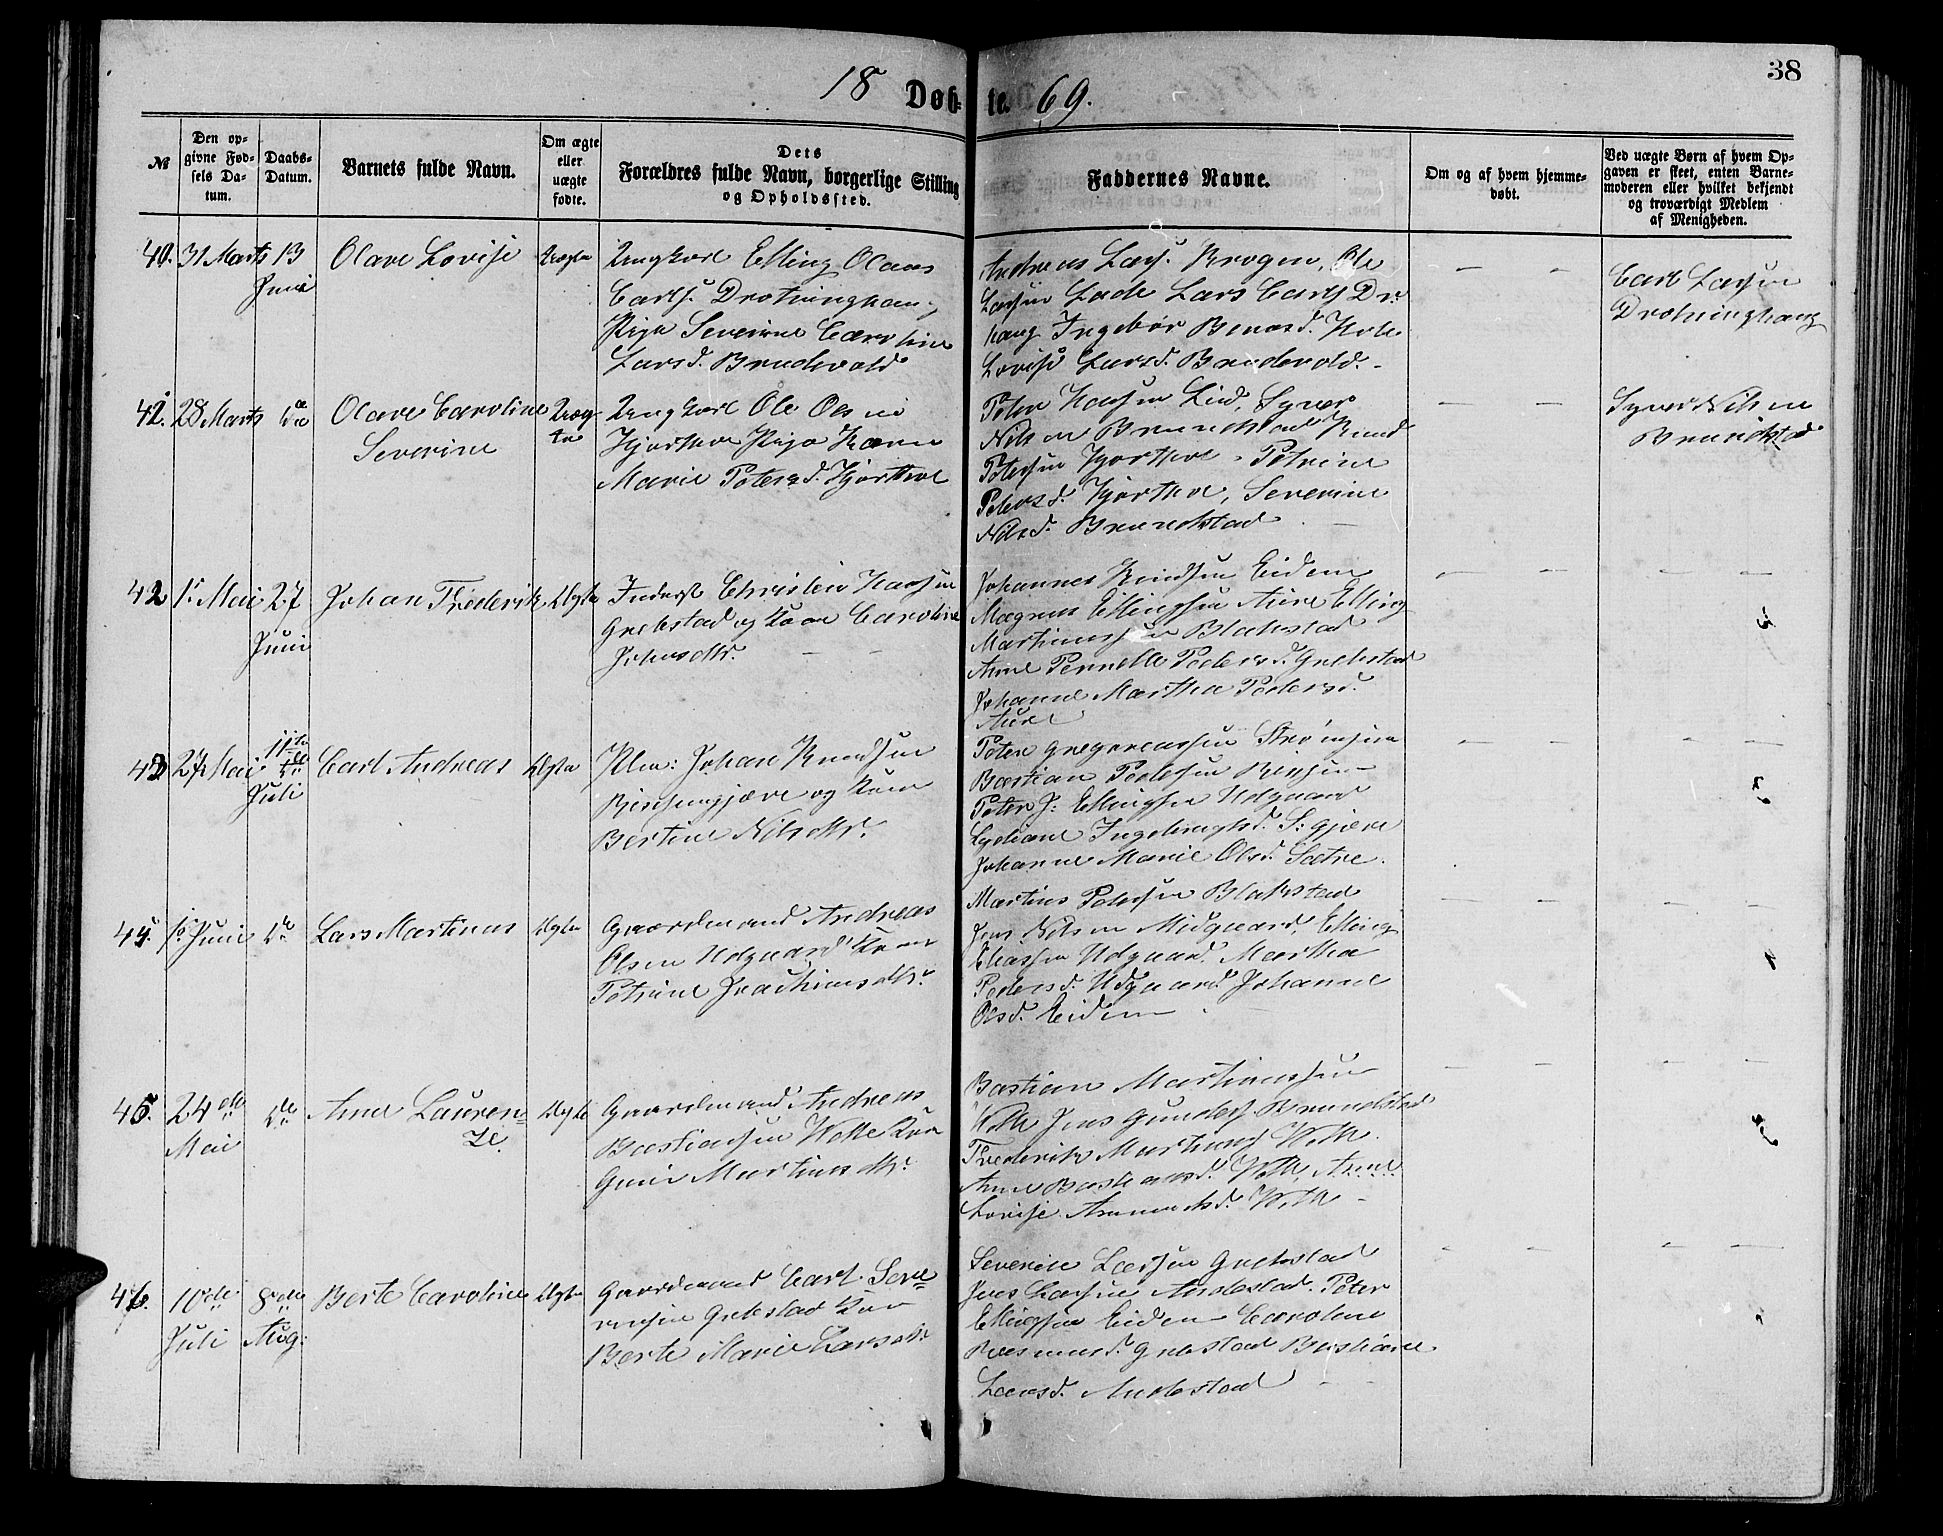 38
18 Døb- te. 69.
№
Den opgivne Fødsels Datum.
Daabs-Datum.
Barnets fulde Navn.
Om ægte eller uægte fødte.
Dets Forældres fulde Navn, borgerlige Stilling og Opholdssted.
Faddernes Navne.
Om og af hvem hjemmedøbt.
Ved uægte Børn af hvem Opgaven er skeet, enten Barnemoderen eller hvilket bekjendt og troværdigt Medlem af Menigheden.
40. 31 Marts 13 Juni
Olave Lovise
Uægte
Ungkarl Elling Olaus
Carls. Drotninghaug
Pige Severine Caroline
Larsd. Brudevold
Andreas Lars. Krogen, Ole
Larsen Lade Lars Carls Dr.
haug Ingebor
Lovise Larsd. Brudevold.
Carl Larsen
Drotninghaug
41. 28 Marts do
Olave Caroline
Severine
Uægte
Ungkarl Ole Olsen
Hjorthol Pige Karen
Marie Petersd. Hjorthol
Peter Hansen Lid, Syver
Nilsen Brunstad Knud
Petersen Hjorthol, Petrine
Petersd. Hjorthol, Severine
Nilsd. Brundstad
Syver Nilsen
Brundstad
42 1 Mai 27 Juni
Johan Frederik
Ægte
Inderst Christen Hansen
Grebstad og Kone Caroline
Johns dtr.
Johannes Knudsen Eidem
Magnus Ellingsen Aure Elling
Martinussen Blakstad
Anne Pernelle Peders d. Grebstad
Johanne Martha Pedersd.
Aure
43 27 Mai 11te Juli
Carl Andreas
Ægte
Plm: Johan Knudsen
og Kone
Bertine Nils dtr.
Peter Gregoriussen Strømjem
Bastian Pedersen
Peter J: Ellingsen Udgaard
Lydiane Ingebrigtsd. S:gjære
Johanne Marie Olsd. Sætre.
44. 10 Juni do
Lars Martinus
Ægte
Gaardmand Andreas
Olsen Udgaard Kone
Petrine Joachims dtr.
Martinus Pedersen Blakstad
Jens Nilsen Midgaard, Elling
Eliassen Udgaard. Martha
Pedersd. Udgaard Johanne
Olsd. Eidem
45. 24de Mai do
Anne Laurenze
Ægte
Gaardmand Andreas
Bastiansen Welle Kone
Martinus dtr.
Bastian Martinussen
Welle Jens Gunders. Brundstad
Frederik Martinus Welle.
Anne Bastiansd. Welle, Anne
Lovise Welle
46. 10de Juli 8de Aug:
Berte Caroline
Ægte
Gaardmand Carl Severinsen
Grebstad Kone
Berte Marie Lars dtr.
Severin Larsen Grebstad
Jens Larsen Andestad. Peter
Ellingsen Eidem Caroline
Rasmusd. Grebstad Bastiane
Larsd. Andestad